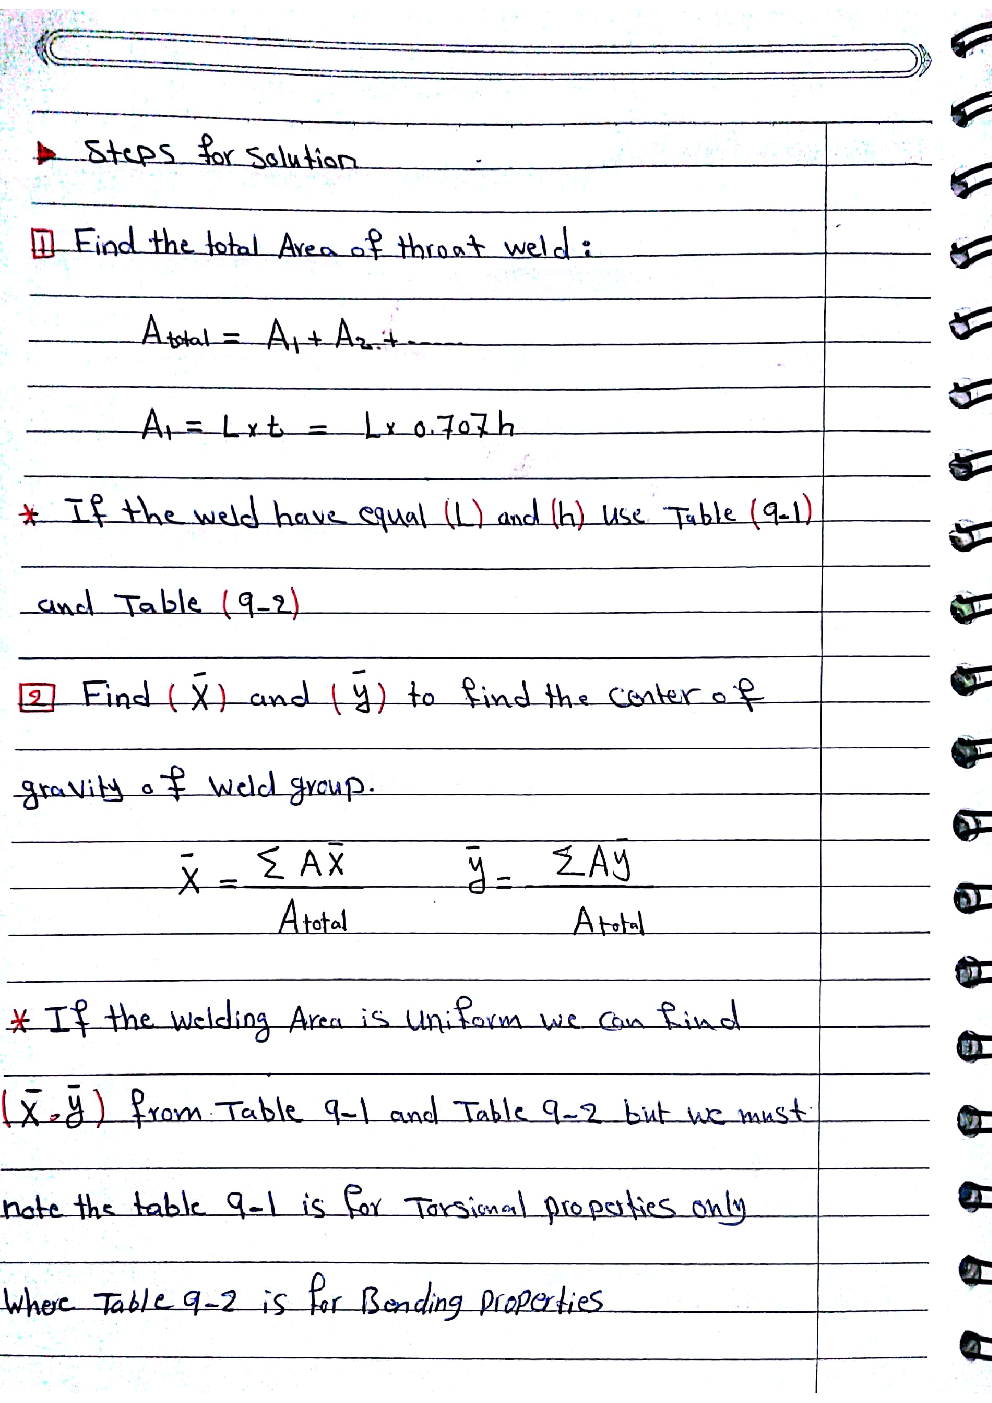 ▶ Steps for solution
1 Find the total Area of throat weld:
Atotal = A1 + A2 + ......
A1 = L x t = L x 0.707h
* If the weld have equal (L) and (h) use Table (9-1)
and Table (9-2)
2 Find (x̄) and (ȳ) to find the center of
gravity of weld group.
x̄ = Σ A x̄ / Atotal ȳ = Σ A ȳ / Atotal
* If the welding Area is uniform we can find
(x̄, ȳ) from Table 9-1 and Table 9-2 but we must
note the table 9-1 is for Torsional properties only
Where Table 9-2 is for Bending properties